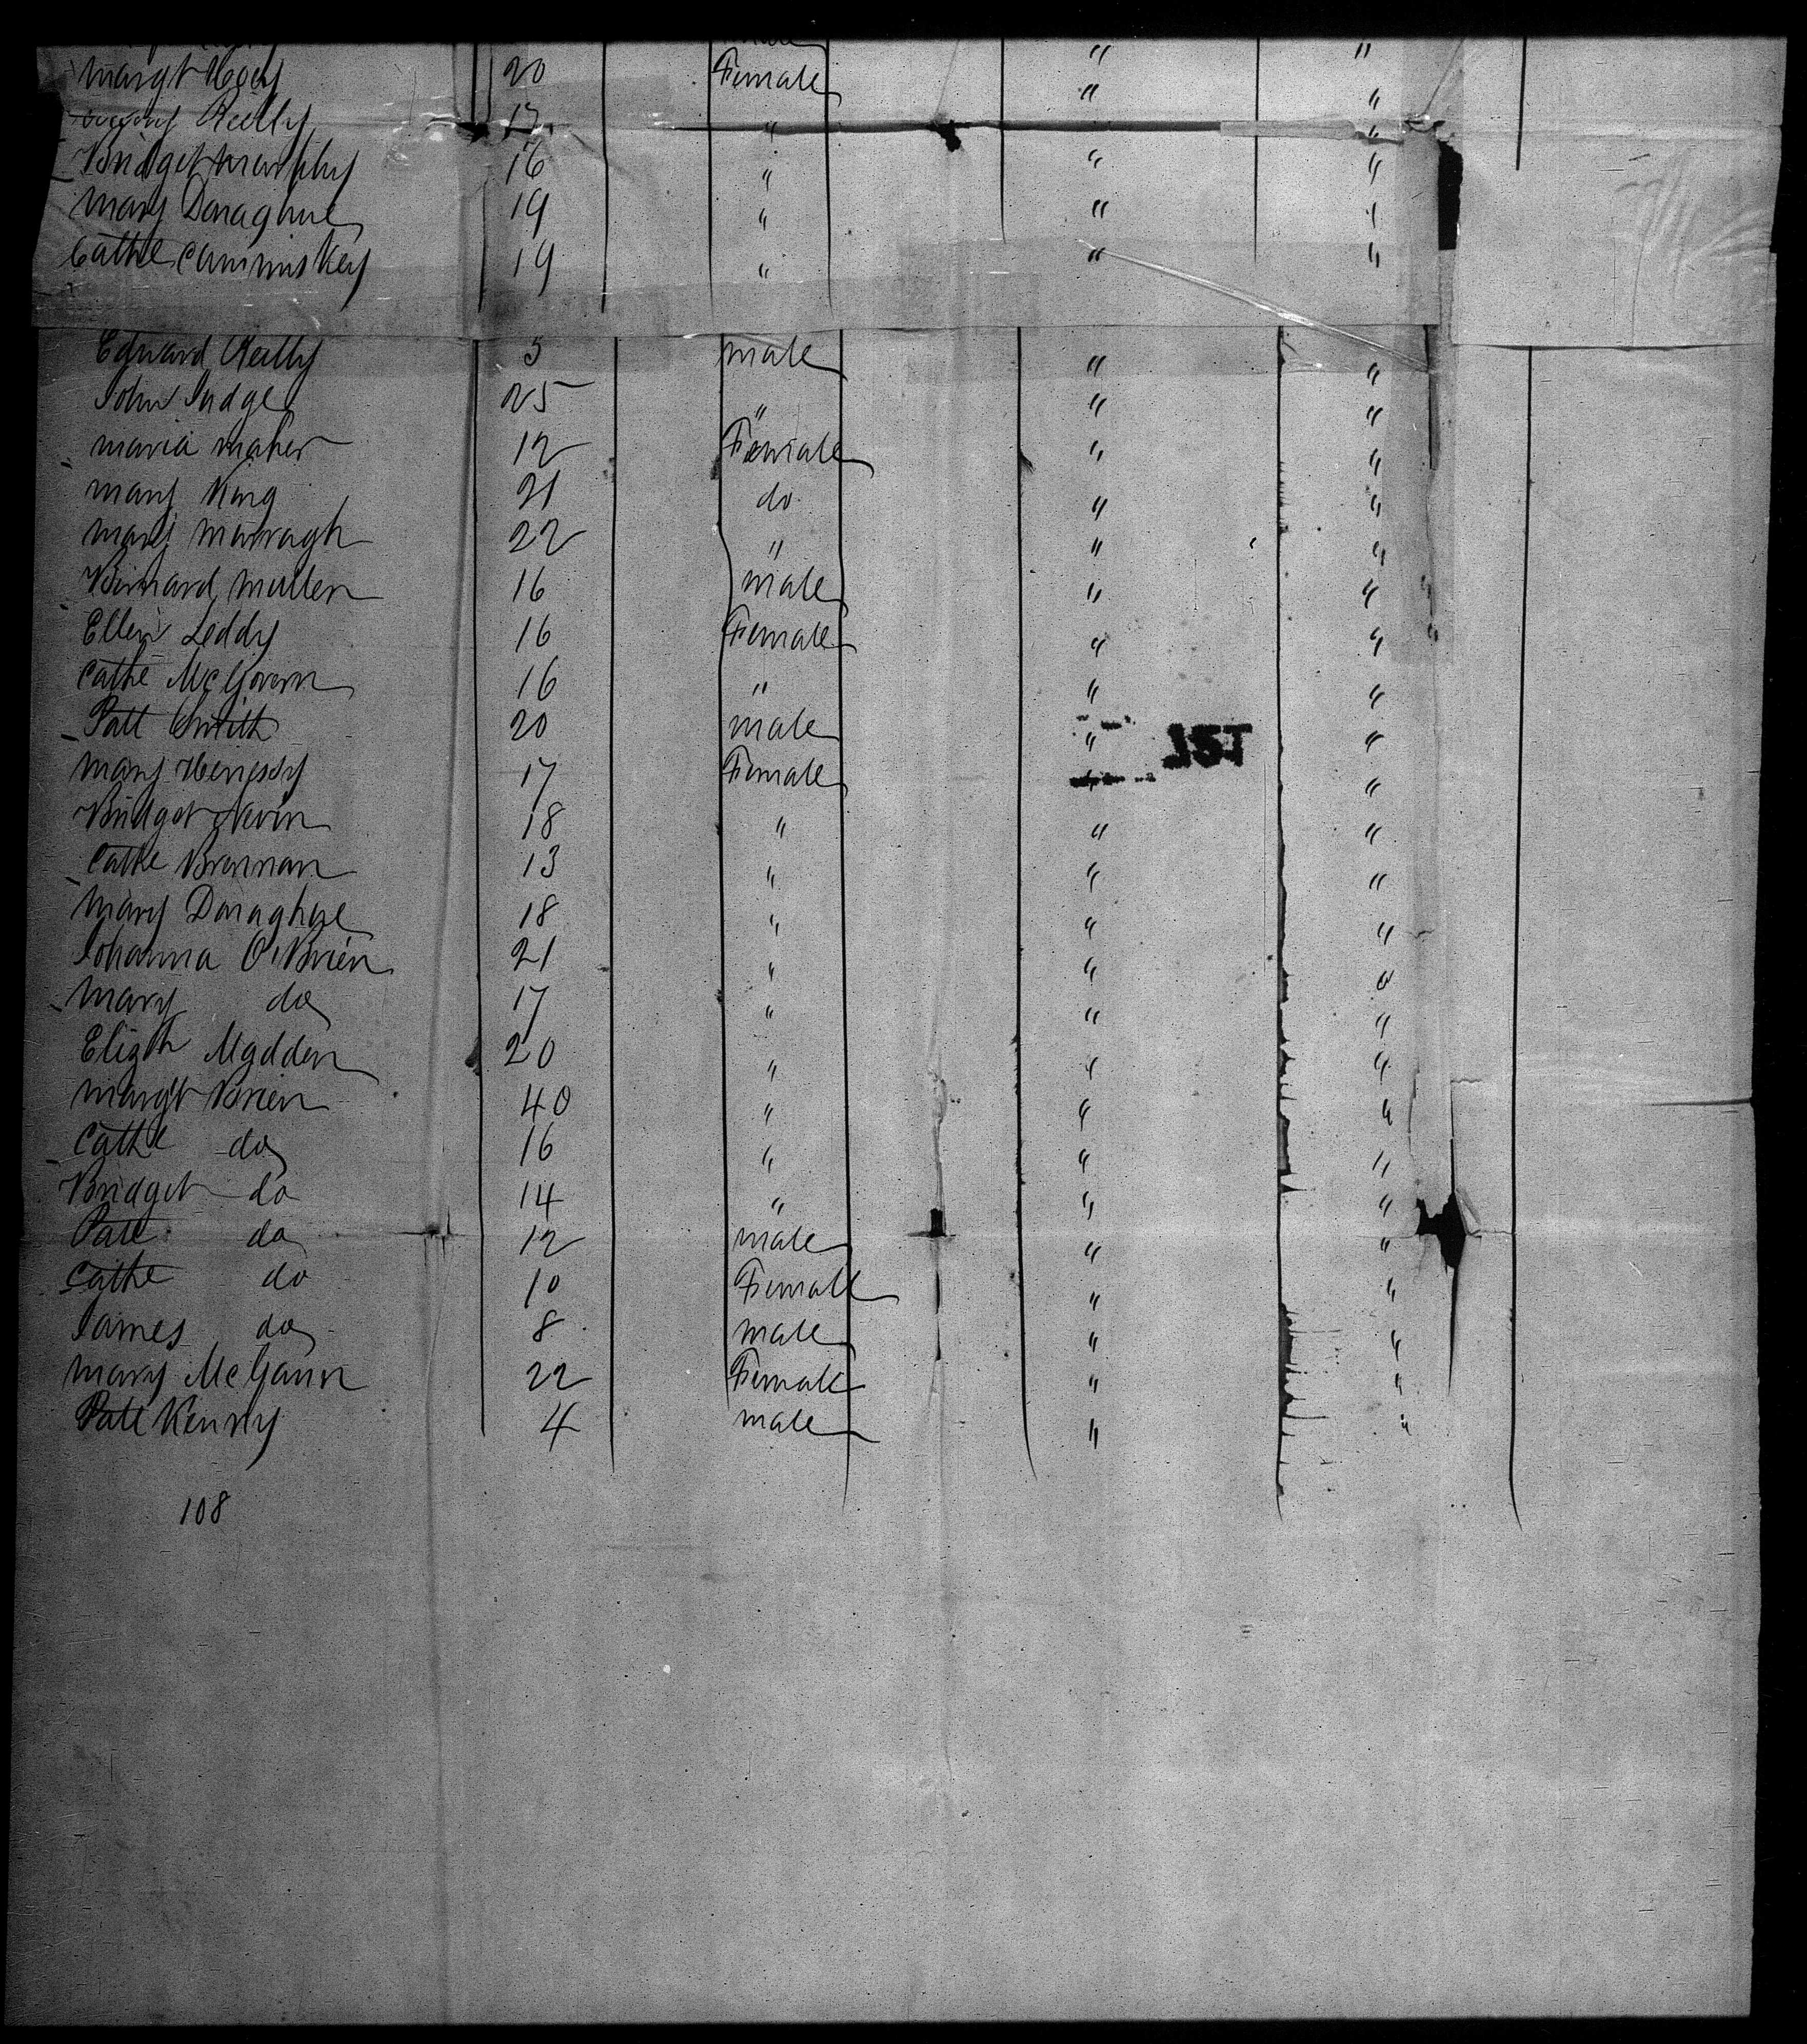 Margt Hoey 20 Female " "
Mary Reilly 17 " " "
Bridget Murphy 16 " " "
Mary Donaghue 19 " " "
Cathe Cummiskey 19 " " "
Edward Reilly 5 male " "
John Judge 25 " " "
Maria Maher 12 Female " "
Mary King 21 do " "
Mary 22 " " "
Bernard Mullen 16 male " "
Ellen Leddy 16 Female " "
Cathe McGovern 16 " " "
Patt Smith 20 male " "
Mary Henessy 17 Female " "
Bridget Nevin 18 " " "
Cathe Brennan 13 " " "
Mary Donaghue 18 " " "
Johanna O'Brien 21 " " "
Mary do 17 " " "
Elizth Madden 20 " " "
Margt Brien 40 " " "
Cathe do 16 " " "
Bridget do 14 " " "
Patt do 12 male " "
Cathe do 10 Female " "
James do 8 male " "
Mary McGann 22 Female " "
Patt Kenny 4 male " "
108